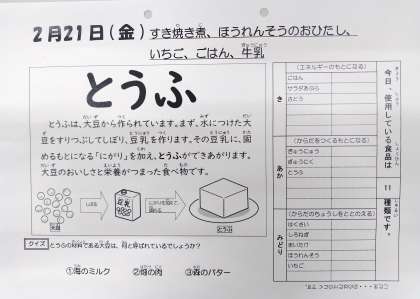 2月21日(金) すき焼き煮、ほうれんそうのおひたし、
いちご、ごはん、牛乳
とうふ
とうふは、大豆から作られています。まず、水につけた大
豆をすりつぶしてしぼり、豆乳を作ります。その豆乳に、固
めるもとになる「にがり」を加え、とうふができあがります。
大豆のおいしさと栄養がつまった食べ物です。
大豆
しぼる
豆乳
とうふ
クイズ とうふの材料である大豆は、何と呼ばれているでしょうか?
①海のミルク ②畑の肉 ③森のバター
今日、使用している食品は
11種類です。
き
(エネルギーのもとになる)
ごはん
サラダあぶら
さとう
あか
(からだをつくるもとになる)
ぎゅうにゅう
ぎゅうにく
とうふ
みどり
(からだのちょうしをととのえる)
はくさい
しろねぎ
まいたけ
ほうれんそう
いちご